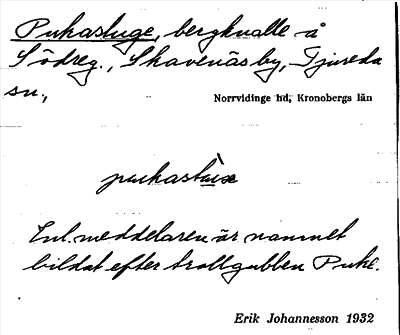 Pukastuge, bergknalle å
Södreg., Skavenäs by, Tjureda
sn.,
Norrvidinge hd, Kronobergs län
Enl. meddelaren är namnet
bildat efter trollgubben Puke.
Erik Johannesson 1932